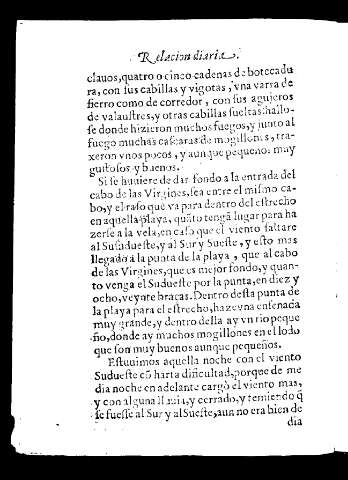 Relacion diaria.
clauos, quatro o cinco cadenas de botecadu
ra, con sus cabillas y vigotas, vna varra de
fierro como de corredor, con sus agujeros
de valaustres, y otras cabillas sueltas: hallo-
se donde hizieron muchos fuegos, y junto al
fuego muchas cascaras de mogillones, tra-
xeron vnos pocos, y aunque pequeños muy
gustosos y buenos.
Si se huuiere de dar fondo a la entrada del
cabo de las Virgines, sea entre el mismo ca-
bo, y el raso que va para dentro del estrecho
en aquella playa, quãto tengã lugar para ha
zerse a la vela, en caso que el viento saltare
al Susudueste, y al Sur y Sueste, y esto mas
llegado a la punta de la playa, que al cabo
de las Virgines, que es mejor fondo, y quan-
to venga el Sudueste por la punta, en diez y
ocho, veynte bracas. Dentro desta punta de
la playa para el estrecho, haze vna ensenada
muy grande, y dentro della ay vn rio peque
ño, donde ay muchos mogillones en el lodo
que son muy buenos aunque pequeños.
Estuuimos aquella noche con el viento
Sudueste cõ harta dificultad, porque de me
dia noche en adelante cargò el viento mas,
y con alguna lluuia, y cerrado, y temiendo q̃
se fuesse al Sur y al Sueste, aun no era bien de
dia